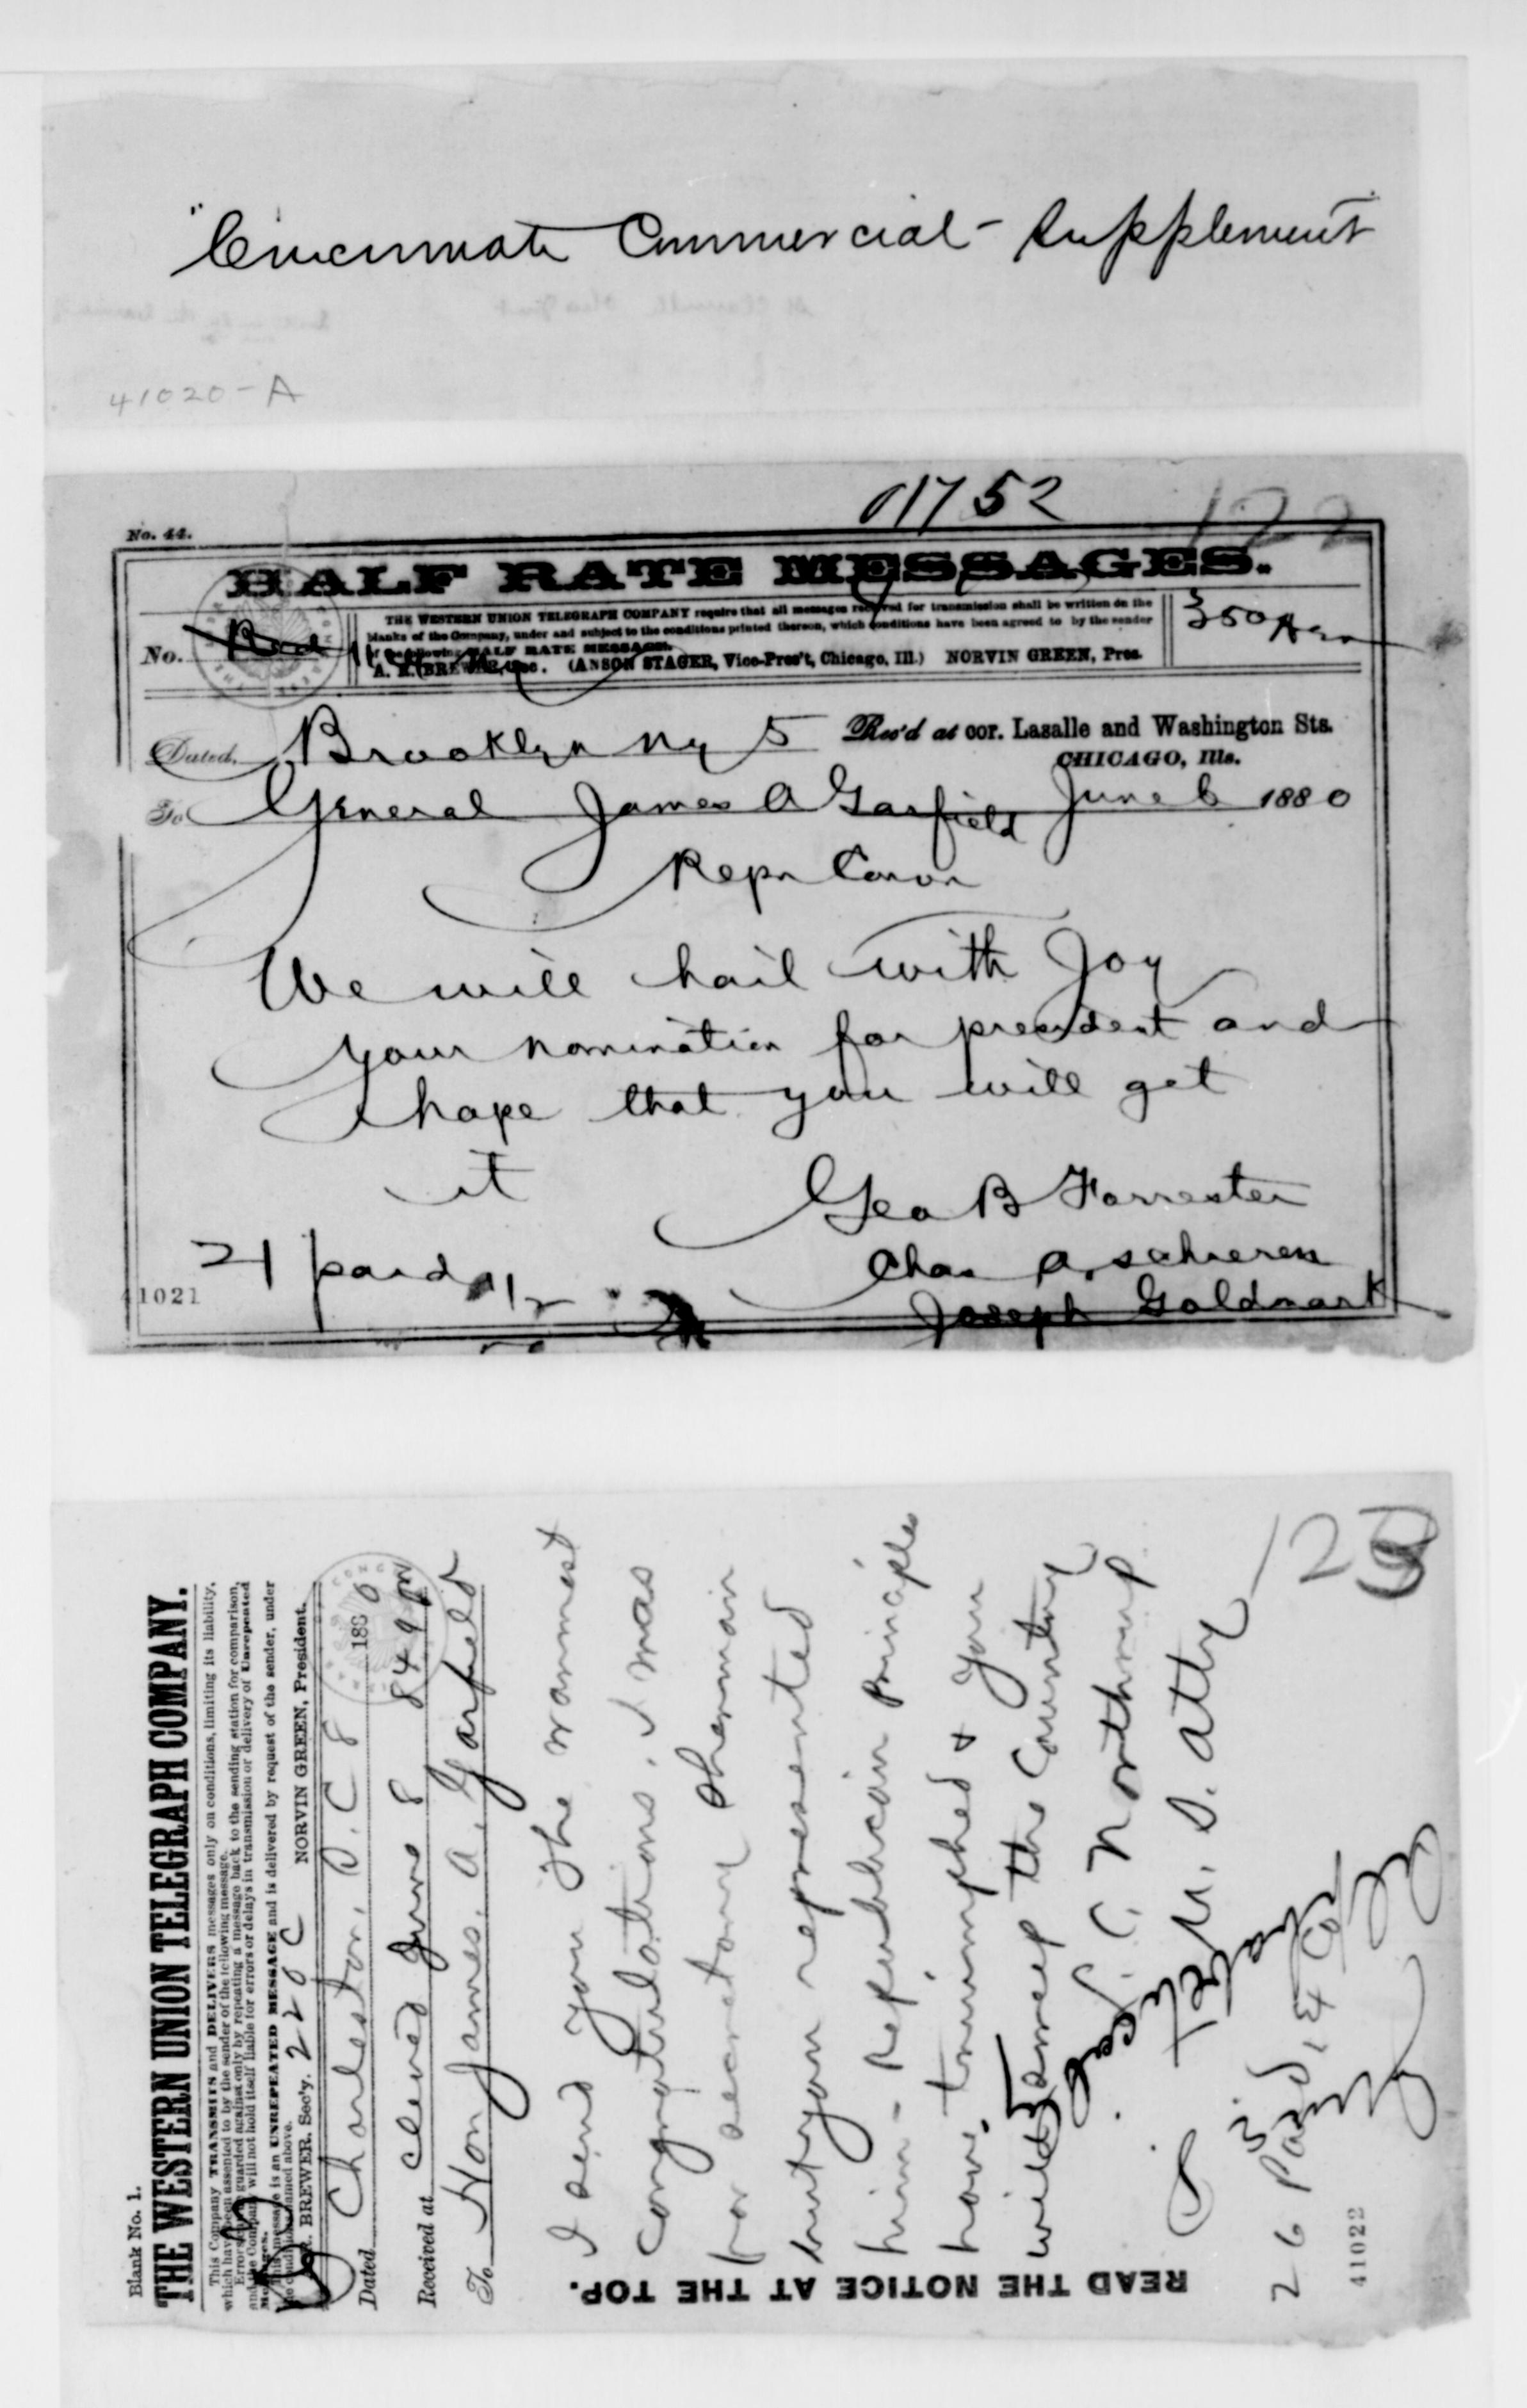 "Cincinnati Commercial - Supplement
41020-A
01752
122
No. 44.
HALF RATE MESSAGES.
THE WESTERN UNION TELEGRAPH COMPANY require that all messages received for transmission shall be written on the
blanks of the Company, under and subject to the conditions printed thereon, which conditions have been agreed to by the sender
of the following HALF RATE MESSAGE.
A. R. BREWER, Sec. (ANSON STAGER, Vice-Pres't, Chicago, Ill.) NORVIN GREEN, Pres.
No.
350 am
Dated, Brooklyn Ny 5
Rec'd at cor. Lasalle and Washington Sts.
CHICAGO, Ills.
To General James A Garfield June 6 1880
Repn Convn
We will hail with Joy
your nomination for president and
hope that you will get
it
Geo B Forrester
Chas A. Schieren
Joseph Goldmark
21 paid 1/2
41021
Blank No. 1.
THE WESTERN UNION TELEGRAPH COMPANY.
This Company TRANSMITS and DELIVERS messages only on conditions, limiting its liability,
which have been assented to by the sender of the following message.
Errors can be guarded against only by repeating a message back to the sending station for comparison,
and the Company will not hold itself liable for errors or delays in transmission or delivery of Unrepeated
Messages.
This message is an UNREPEATED MESSAGE and is delivered by request of the sender, under
the conditions named above.
A. R. BREWER, Sec'y. 220 C NORVIN GREEN, President.
Dated Charleston, S. C 8 1880
Received at Cleved June 8 849 pm
To Hon James. A. Garfield
I send you the warmest
Congratulations. I was
for secretary Sherman
but you represented
him - Republican Principles
have triumphed & you
will sweep the Country
S. C. Northrup
U. S. atty
26 Paid,
READ THE NOTICE AT THE TOP.
41022
123